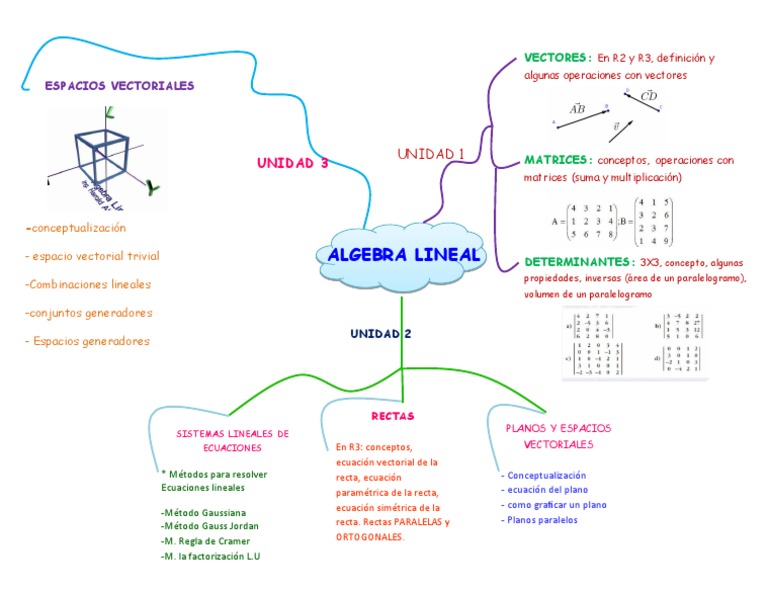 ESPACIOS VECTORIALES
-conceptualización
- espacio vectorial trivial
-Combinaciones lineales
-conjuntos generadores
- Espacios generadores
UNIDAD 3
UNIDAD 1
ALGEBRA LINEAL
UNIDAD 2
VECTORES: En R2 y R3, definición y
algunas operaciones con vectores
AB
CD
v
MATRICES: conceptos, operaciones con
matrices (suma y multiplicación)
A = (4 3 2 1; B = (4 1 5
1 2 3 4 3 2 6
5 6 7 8) 2 3 7
1 4 9)
DETERMINANTES: 3X3, concepto, algunas
propiedades, inversas (área de un paralelogramo),
volumen de un paralelogramo
a)
b)
c)
d)
SISTEMAS LINEALES DE
ECUACIONES
* Métodos para resolver
Ecuaciones lineales
-Método Gaussiana
-Método Gauss Jordan
-M. Regla de Cramer
-M. la factorización L.U
RECTAS
En R3: conceptos,
ecuación vectorial de la
recta, ecuación
paramétrica de la recta,
ecuación simétrica de la
recta. Rectas PARALELAS y
ORTOGONALES.
PLANOS Y ESPACIOS
VECTORIALES
- Conceptualización
- ecuación del plano
- como graficar un plano
- Planos paralelos